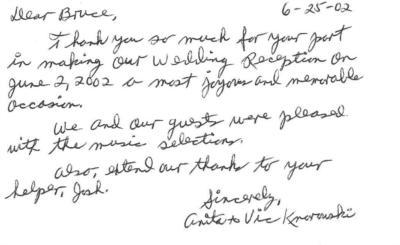 Dear Bruce, 6-25-02
Thank you so much for your part
in making our Wedding Reception on
June 2, 2002 a most joyous and memorable
occasion.
We and our guests were pleased
with the music selections.
Also, extend our thanks to your
helper, Josh.
Sincerely,
Anita & Vic